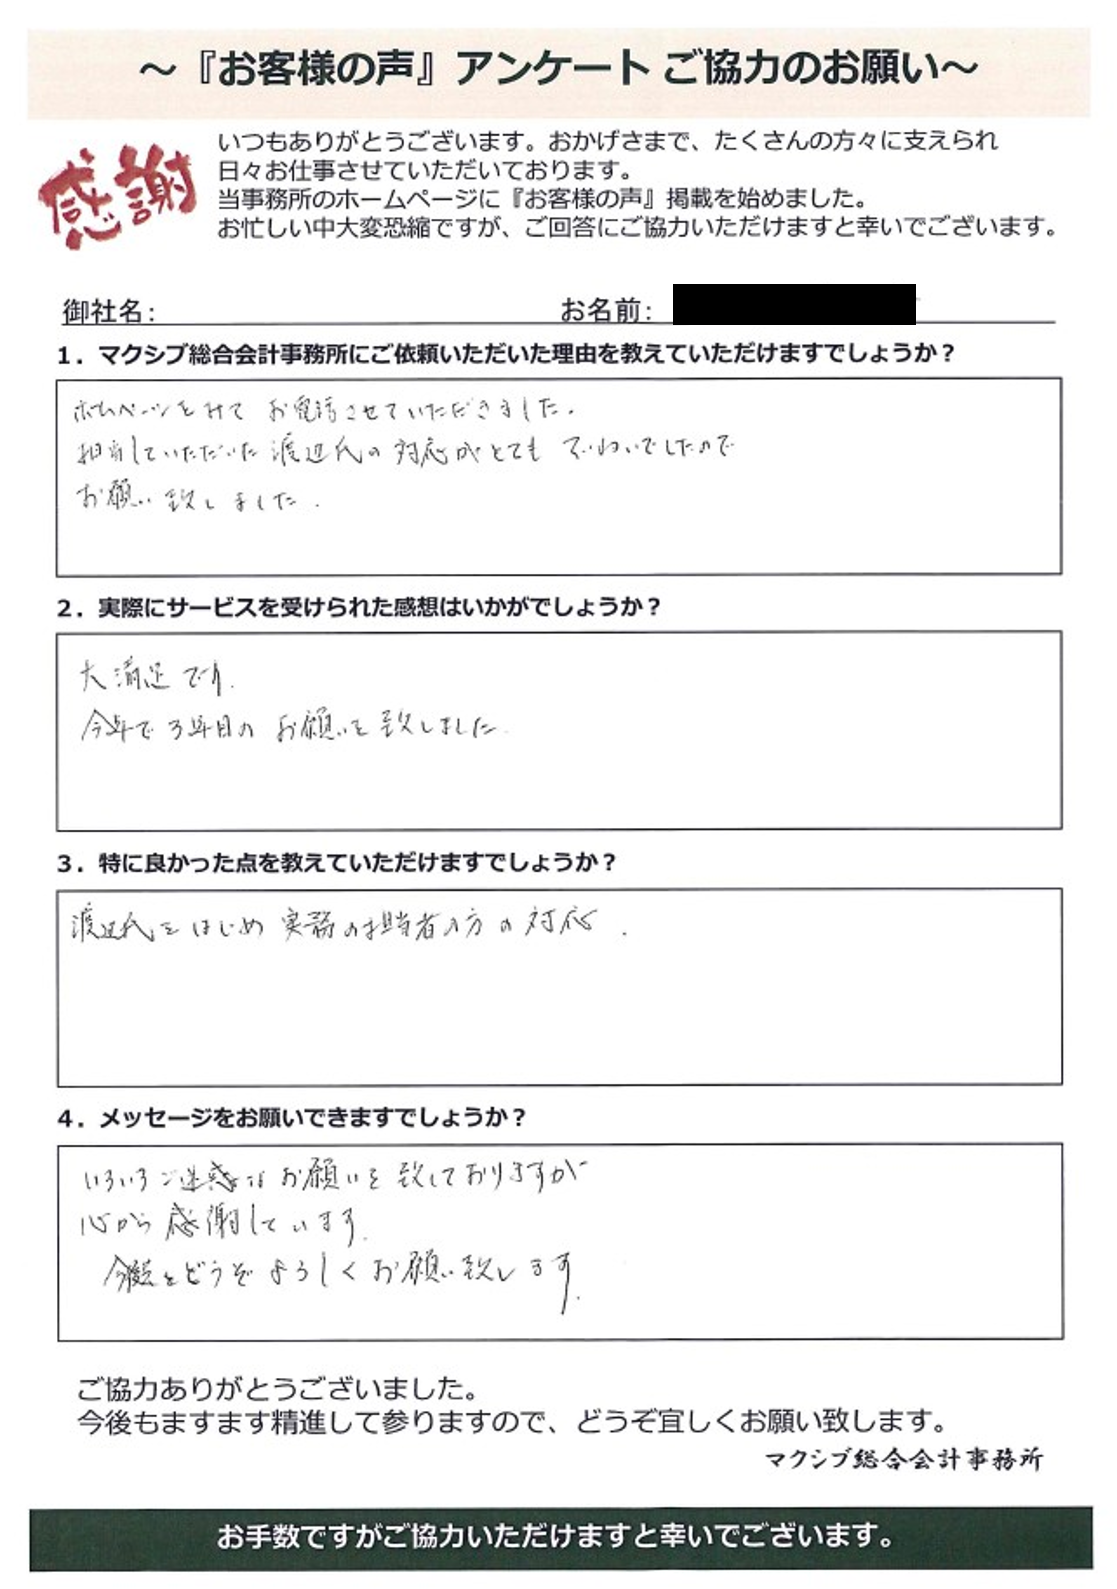 ～『お客様の声』アンケート ご協力のお願い～
感謝
いつもありがとうございます。おかげさまで、たくさんの方々に支えられ
日々お仕事させていただいております。
当事務所のホームページに『お客様の声』掲載を始めました。
お忙しい中大変恐縮ですが、ご回答にご協力いただけますと幸いでございます。
御社名： お名前：
1．マクシブ総合会計事務所にご依頼いただいた理由を教えていただけますでしょうか？
ホームページをみて お電話させていただきました。
担当していただいた 渡辺氏の 対応がとても ていねいでしたので
お願い 致しました．
2．実際にサービスを受けられた感想はいかがでしょうか？
大満足です．
今年で3年目の お願いを致しました．
3．特に良かった点を教えていただけますでしょうか？
渡辺氏をはじめ 実務の担当者の方の対応．
4．メッセージをお願いできますでしょうか？
いろいろご迷惑な お願いを致しておりますが
心から感謝しています．
どうぞ よろしくお願い致します．
ご協力ありがとうございました。
今後もますます精進して参りますので、どうぞ宜しくお願い致します。
マクシブ総合会計事務所
お手数ですがご協力いただけますと幸いでございます。